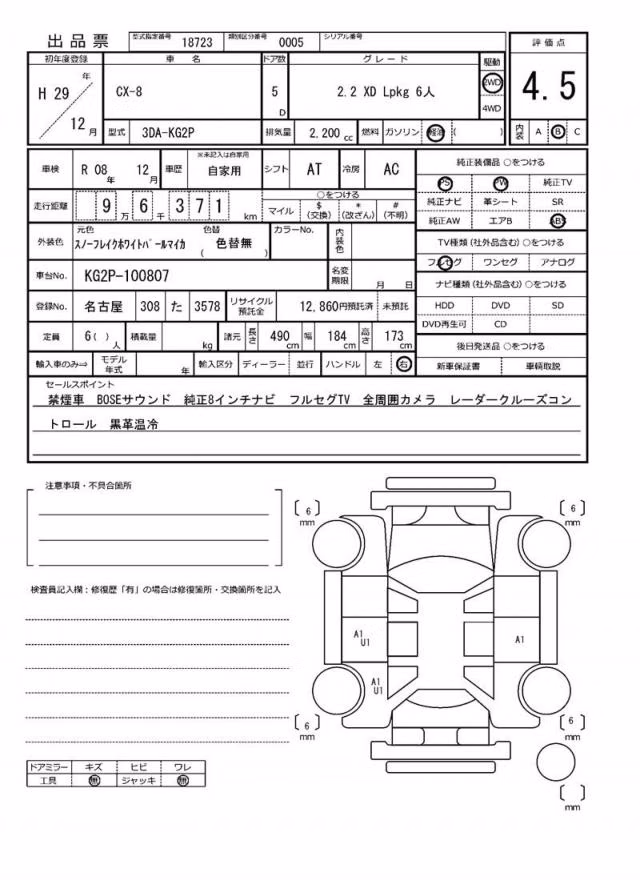 出品票 型式指定番号 18723 類別区分番号 0005 シリアル番号
初年度登録 車名 ドア数 グレード 駆動 評価点
H 29 年 CX-8 5 D 2.2 XD Lpkg 6人 2WD 4.5
4WD
12 月 型式 3DA-KG2P 排気量 2,200 cc 燃料 ガソリン 軽油 ( ) 内装 A B C
車検 R 08 年 12 月 車歴 ※未記入は自家用 自家用 シフト AT 冷房 AC 純正装備品 ○をつける
PS PW 純正TV
走行距離 9 万 6 千 3 7 1 km ○をつける
マイル $ (交換) * (改ざん) # (不明)
純正ナビ 革シート SR
純正AW エアB ABS
外装色 元色 スノーフレイクホワイトパールマイカ 色替 ( 色替無 ) カラーNo. 内装色
TV種類 (社外品含む) ○をつける
フルセグ ワンセグ アナログ
車台No. KG2P-100807 名変期限 月 日
ナビ種類 (社外品含む) ○をつける
登録No. 名古屋 308 た 3578 リサイクル預託金 12,860円預託済 未預託
HDD DVD SD
DVD再生可 CD
定員 6 ( ) 人 積載量 kg 諸元 長さ 490 cm 幅 184 cm 高さ 173 cm
後日発送品 ○をつける
輸入車のみ⇒ モデル年式 年 輸入区分 ディーラー 並行 ハンドル 左 右 新車保証書 車輌取説
セールスポイント
禁煙車 BOSEサウンド 純正8インチナビ フルセグTV 全周囲カメラ レーダークルーズコン
トロール 黒革温冷
注意事項・不具合箇所
[ 6 ] mm [ 6 ] mm
検査員記入欄：修復歴「有」の場合は修復箇所・交換箇所を記入
A1
U1
A1
A1
U1
[ 6 ] mm [ 6 ] mm
ドアミラー キズ ヒビ ワレ
工具 無 ジャッキ 無
[ ] mm